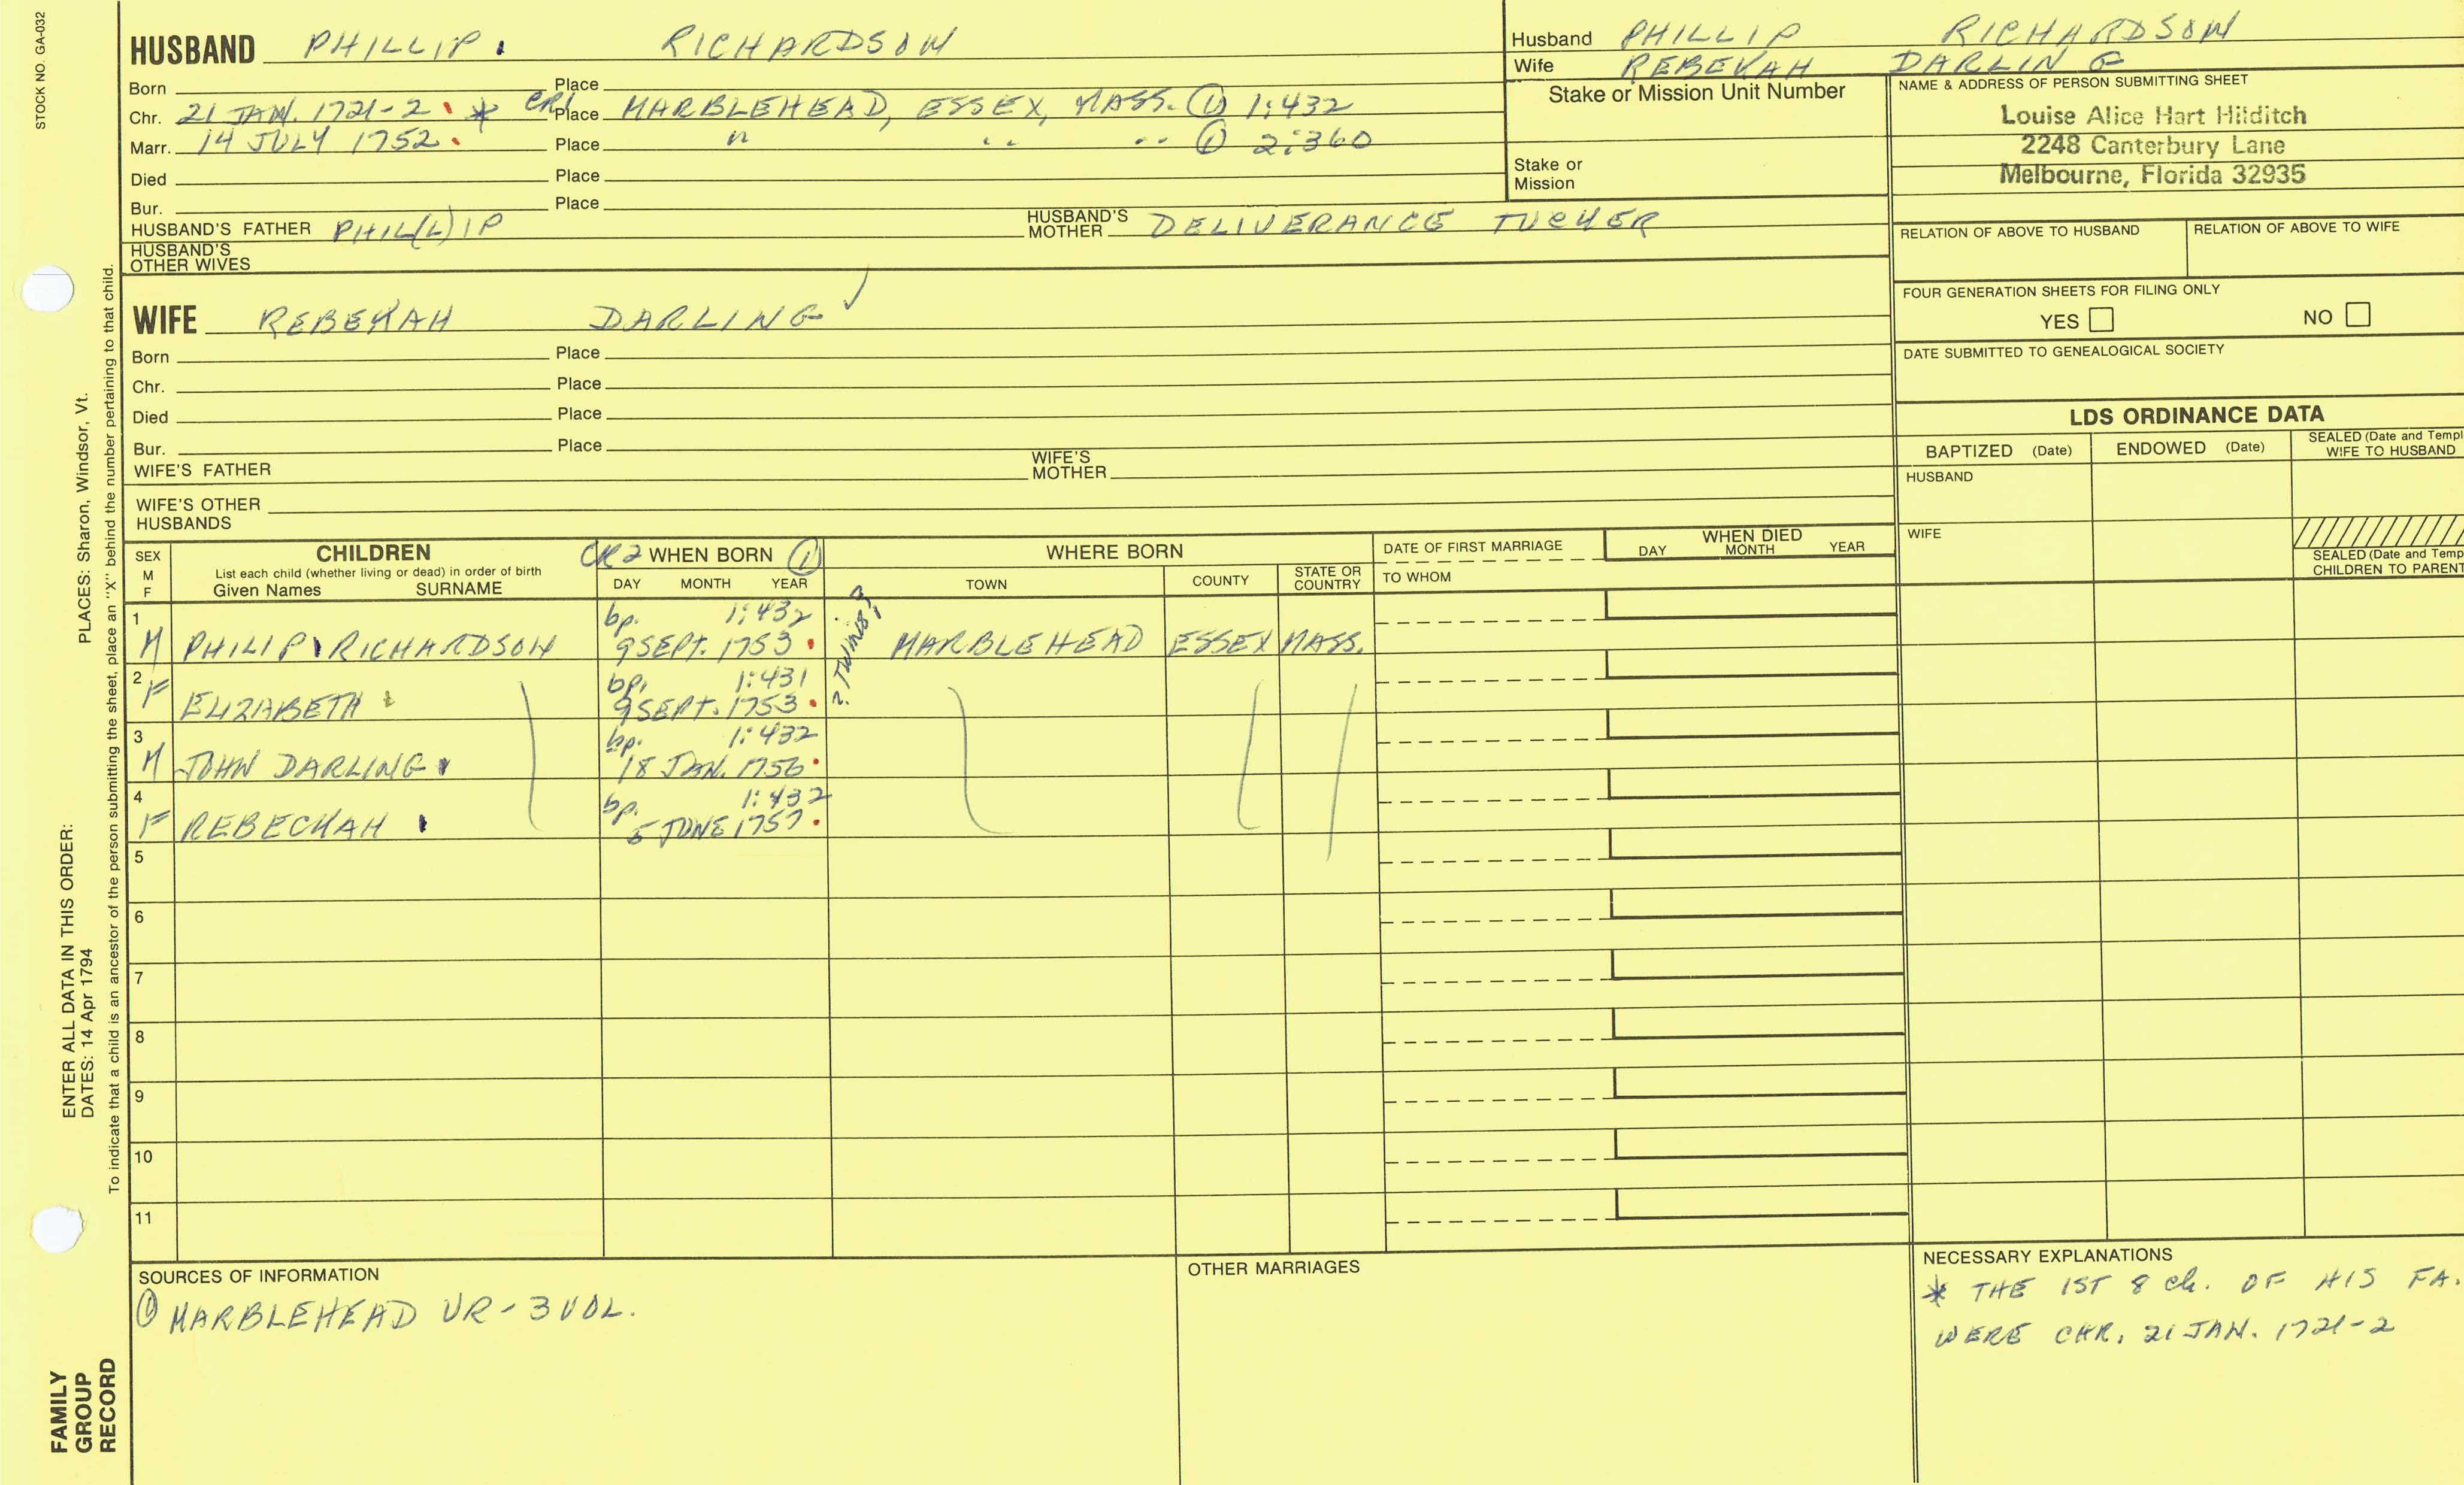 STOCK NO. GA-032
HUSBAND PHILLIP. RICHARDSON
Born Place
Chr. 21 JAN. 1721-2 * CR1 Place MARBLEHEAD, ESSEX, MASS. ① 1:432
Marr. 14 JULY 1752. Place " " " ① 2:360
Died Place
Bur. Place
HUSBAND'S FATHER PHIL(L)IP HUSBAND'S MOTHER DELIVERANCE TUCKER
HUSBAND'S OTHER WIVES
Husband PHILLIP RICHARDSON
Wife REBEKAH DARLING
Stake or Mission Unit Number
Stake or Mission
NAME & ADDRESS OF PERSON SUBMITTING SHEET
Louise Alice Hart Hilditch
2248 Canterbury Lane
Melbourne, Florida 32935
RELATION OF ABOVE TO HUSBAND RELATION OF ABOVE TO WIFE
FOUR GENERATION SHEETS FOR FILING ONLY
YES NO
DATE SUBMITTED TO GENEALOGICAL SOCIETY
WIFE REBEKAH DARLING ✓
Born Place
Chr. Place
Died Place
Bur. Place
WIFE'S FATHER WIFE'S MOTHER
WIFE'S OTHER HUSBANDS
LDS ORDINANCE DATA
BAPTIZED (Date) ENDOWED (Date) SEALED (Date and Templ
WIFE TO HUSBAND
HUSBAND
WIFE
SEALED (Date and Temp
CHILDREN TO PARENT
SEX M F
CHILDREN
List each child (whether living or dead) in order of birth
Given Names SURNAME
CR2 WHEN BORN ①
DAY MONTH YEAR
WHERE BORN
TOWN COUNTY STATE OR COUNTRY
DATE OF FIRST MARRIAGE
TO WHOM
WHEN DIED
DAY MONTH YEAR
1 bp. 1:432
M PHILIP RICHARDSON 9 SEPT. 1753 . MARBLEHEAD ESSEX MASS.
? TWINS ?
2 bp. 1:431
F ELIZABETH 9 SEPT. 1753 .
3 bp. 1:432
M JOHN DARLING 18 JAN. 1756 .
4 bp. 1:432
F REBECKAH 5 JUNE 1757 .
5
6
7
8
9
10
11
SOURCES OF INFORMATION
① MARBLEHEAD VR - 3 VOL.
OTHER MARRIAGES
NECESSARY EXPLANATIONS
* THE 1ST 8 ch. OF HIS FA.
WERE CHR. 21 JAN. 1721-2
PLACES: Sharon, Windsor, Vt.
ENTER ALL DATA IN THIS ORDER:
DATES: 14 Apr 1794
To indicate that a child is an ancestor of the person submitting the sheet, place an "X" behind the number pertaining to that child.
FAMILY
GROUP
RECORD